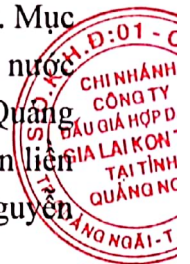 . Mục
nước
Quảng
n liền
guyễn
Đ:01 - C
CHI NHÁNH
CÔNG TY
ĐẤU GIÁ HỢP D
GIA LAI KON T
TẠI TỈNH
QUẢNG NG
NG NGÃI - T